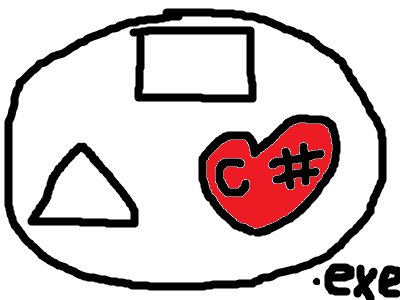 C #
.exe